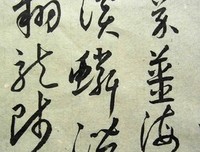 芥薑海
淡鱗潛
翔龍師